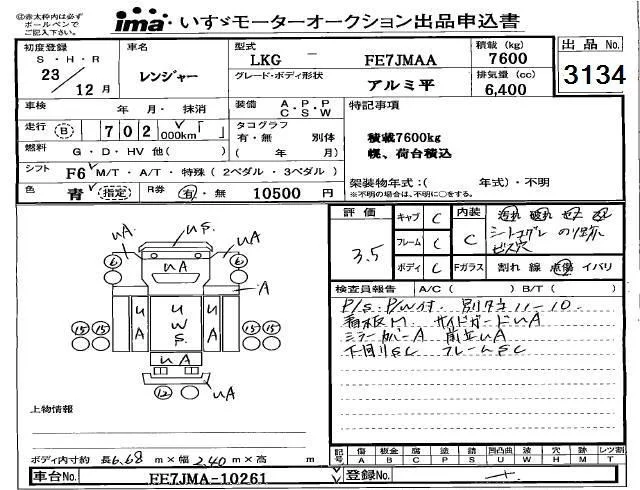 ◎赤太枠内は必ず
ボールペンで
ご記入下さい。
ima いすゞモーターオークション出品申込書
初度登録
S・H・R
23
12 月
車名
レンジャー
型式
LKG － FE7JMAA
積載 (kg)
7600
グレード・ボディ形状
アルミ平
排気量 (cc)
6,400
出品 No.
3134
車検 年 月・ 抹消
装備 A・P・P
C・S・W
特記事項
走行 B 702 000km
タコグラフ
有・無 別体
( 年 )
積載7600kg
幌、荷台積込
燃料 G・D・HV 他( )
シフト F6 M/T・A/T・特殊 ( 2ペダル・3ペダル )
架装物年式：( 年式)・不明
※不明の場合は、不明に○をする。
色 青 指定 R券 有・無 10500 円
評価 3.5
キャブ C
フレーム C
ボディ C
内装 C
シートコゲ
ビス穴
Fガラス 割れ 線 点傷 イバリ
検査員報告 A/C ( ) B/T ( )
P/S. P/W付. 別タテ11-10.
看板ﾅﾉ サイドガードUA
ミラーカバーA 前立UA
下回りSC フレームSC
US.
UA UA
6 6
UA
A
UA UWS. UA
15 15 15 15
UA
12 UA
上物情報
ボディ内寸約 長6.68 m×幅 2.40 m×高 m
記号 傷 板金 腐 塗 錆 凹凸曲 波 穴 跡 レツ割
A B C P S U W H M T
車台No. FE7JMA-10261
登録No.